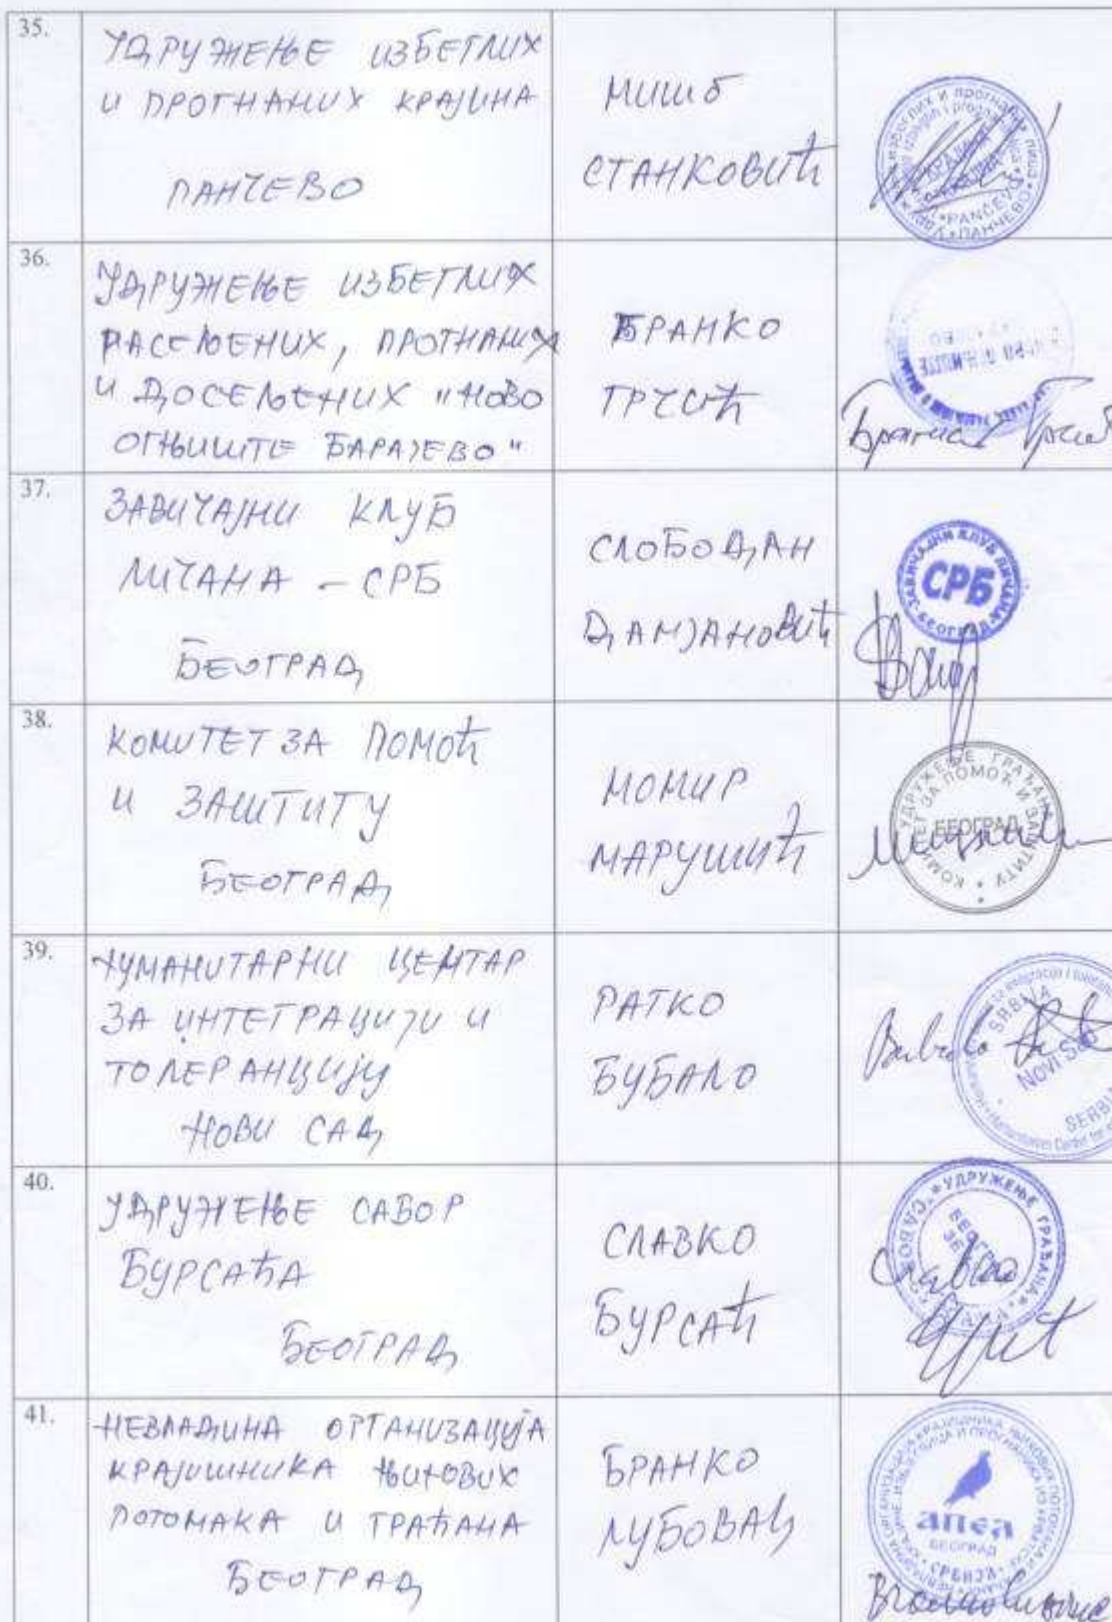 35.
УДРУЖЕЊЕ ИЗБЕГЛИХ
И ПРОГНАНИХ КРАЈИНА
ПАНЧЕВО
СТАНКОВИЋ
КРАЈИНА
PANČEVO
ПАНЧЕВО
36.
УДРУЖЕЊЕ ИЗБЕГЛИХ
РАСЕЉЕНИХ, ПРОГНАНИХ
И ДОСЕЉЕНИХ "НОВО
ОГЊИШТЕ БАРАЈЕВО"
БРАНКО
ГРЧИЋ
37.
ЗАВИЧАЈНИ КЛУБ
ЛИЧАНА – СРБ
БЕОГРАД
СЛОБОДАН
ДАМЈАНОВИЋ
ЗАВИЧАЈНИ КЛУБ ЛИЧАНА
СРБ
БЕОГРАД
38.
КОМИТЕТ ЗА ПОМОЋ
И ЗАШТИТУ
БЕОГРАД
МОМИР
МАРУШИЋ
УДРУЖЕЊЕ ГРАЂАНА
КОМИТЕТ ЗА ПОМОЋ И ЗАШТИТУ
БЕОГРАД
39.
ХУМАНИТАРНИ ЦЕНТАР
ЗА ИНТЕГРАЦИЈУ И
ТОЛЕРАНЦИЈУ
НОВИ САД
РАТКО
БУБАЛО
SRBIJA
NOVI SAD
40.
УДРУЖЕЊЕ САБОР
БУРСАЋА
БЕОГРАД
СЛАВКО
БУРСАЋ
УДРУЖЕЊЕ ГРАЂАНА
41.
НЕВЛАДИНА ОРГАНИЗАЦИЈА
КРАЈИШНИКА ЊИХОВИХ
ПОТОМАКА И ГРАЂАНА
БЕОГРАД
БРАНКО
ЛУБОВАЦ
апеа
БЕОГРАД
СРБИЈА